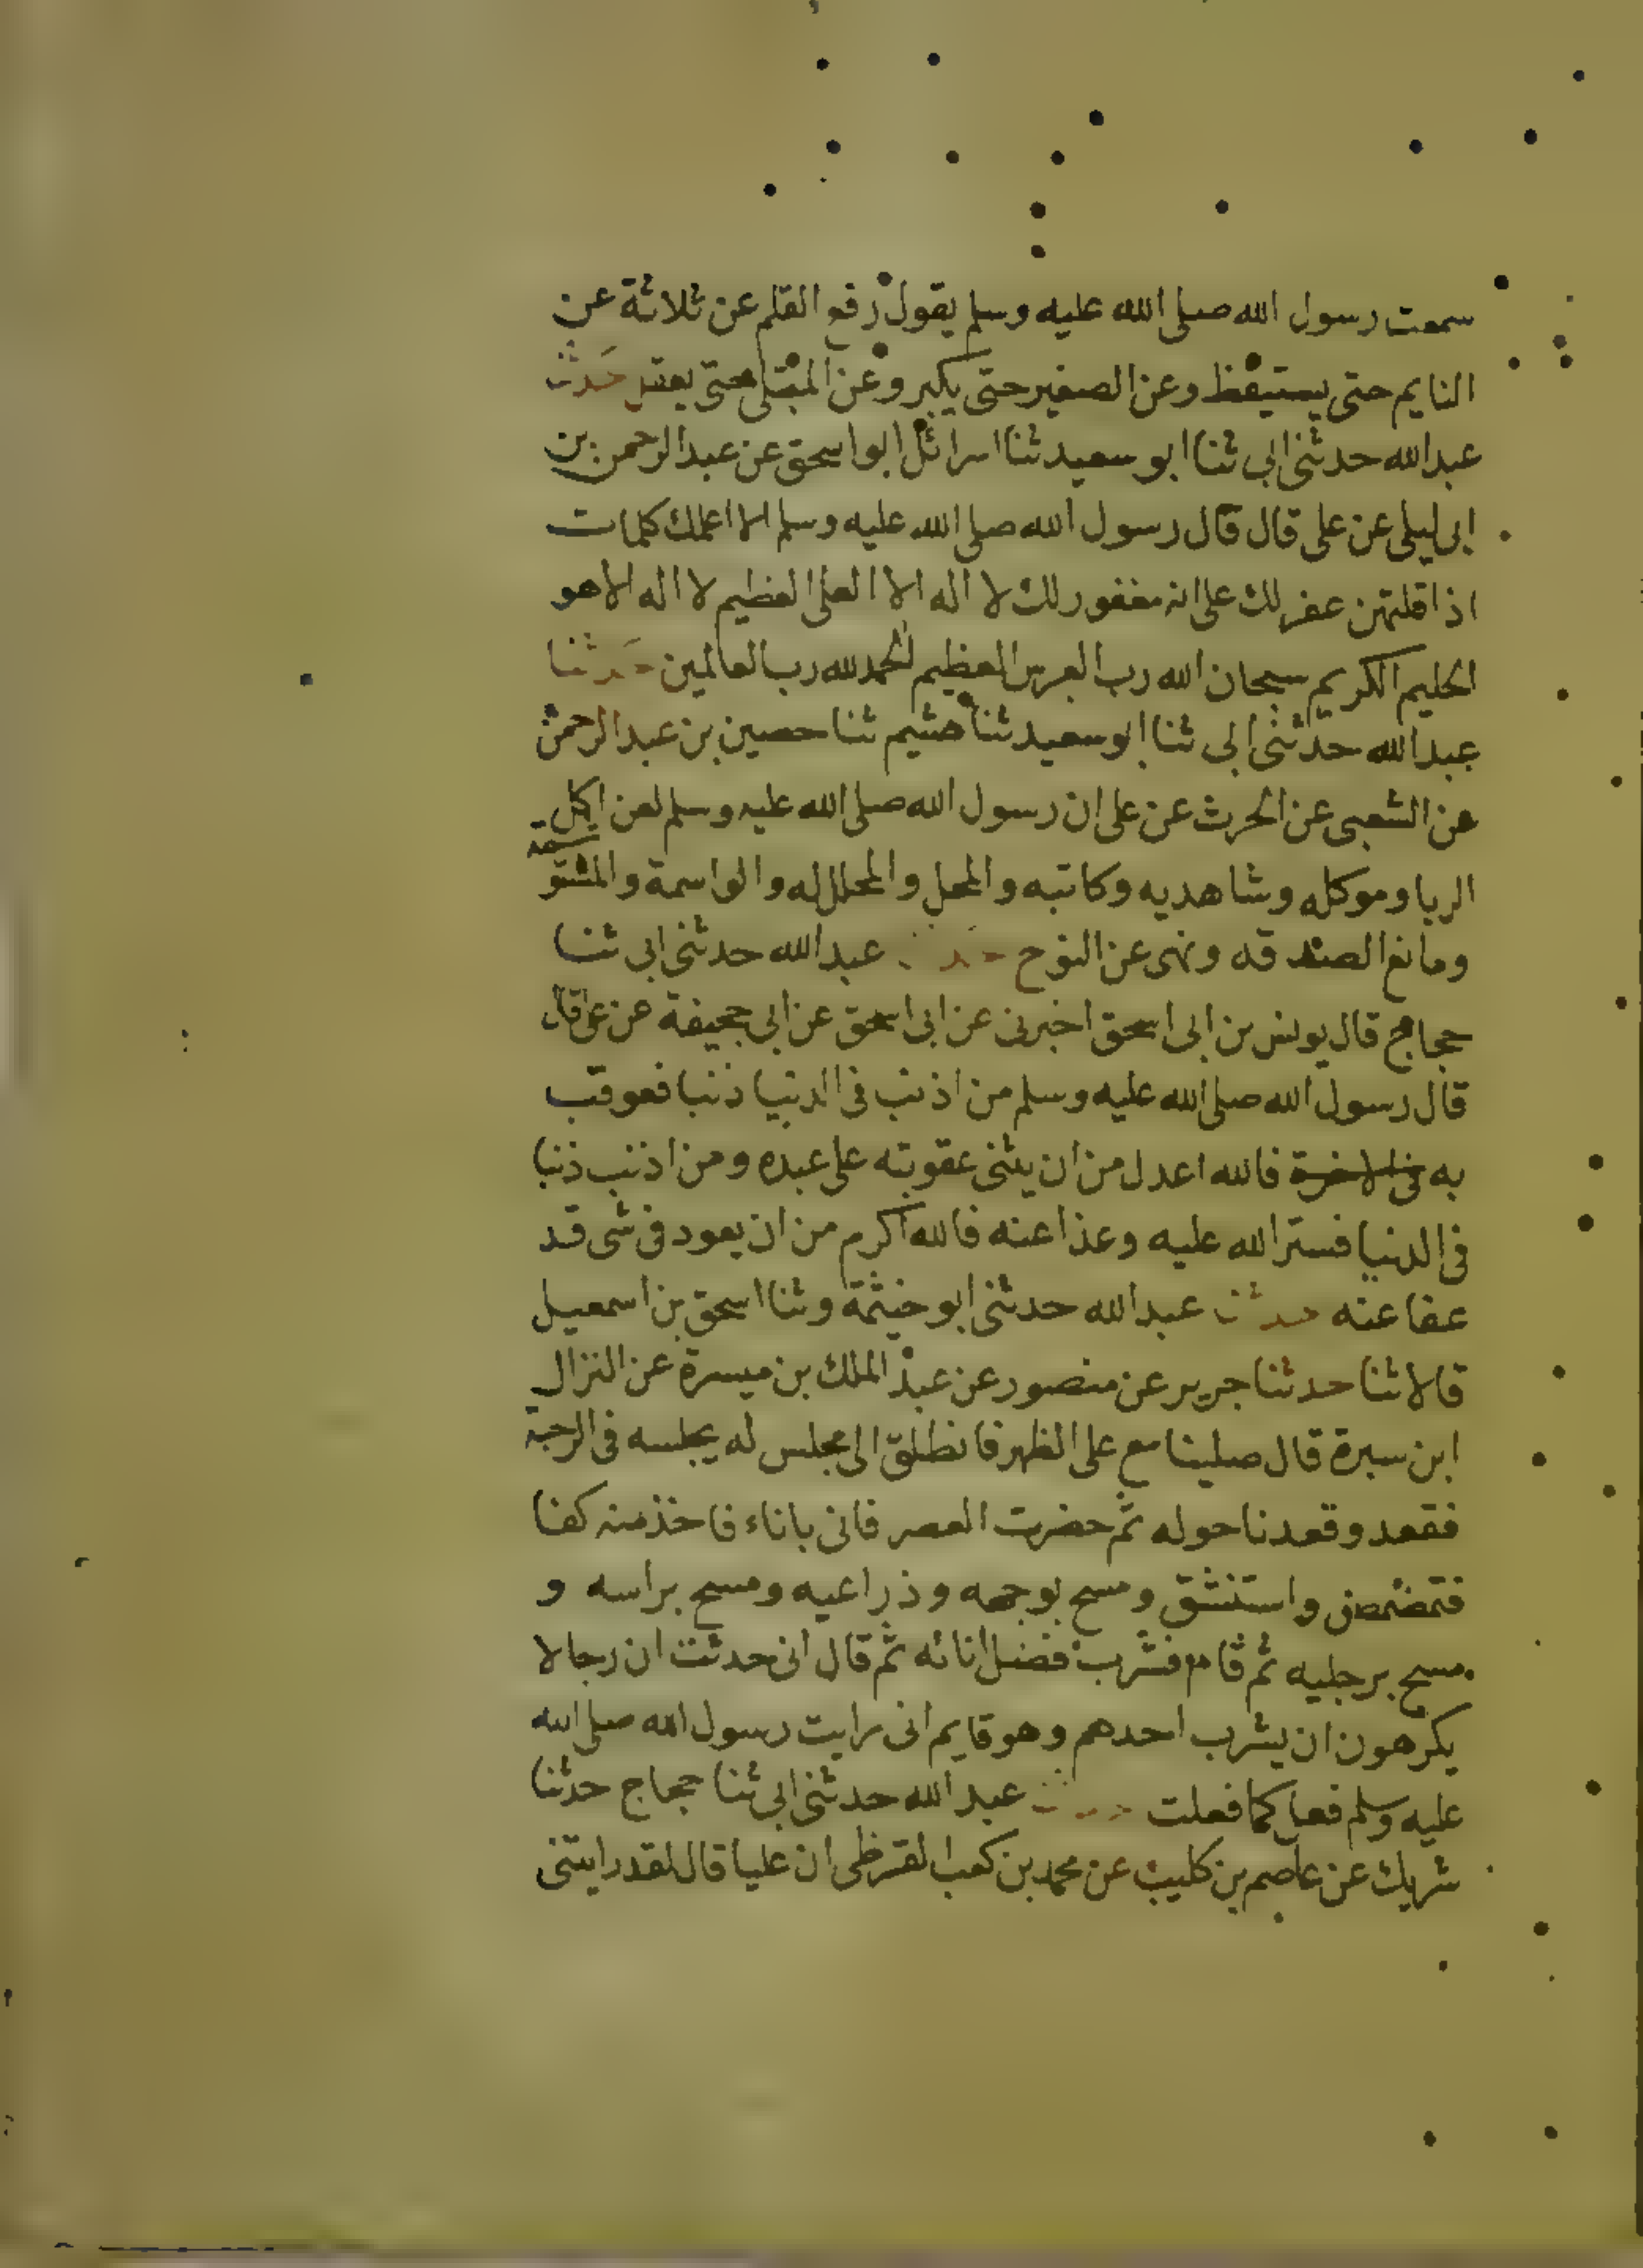 سمعت رسول الله صلى الله عليه وسلم يقول رفع القلم عن ثلاثة عن
النايم حتى يستيقظ وعن الصغير حتى يكبر وعن المبتلى حتى يعقل حدثنا
عبد الله حدثنى ابى ثنا ابو سعيد ثنا اسرائل ابو اسحق عن عبد الرحمن بن
ابى ليلى عن على قال قال رسول الله صلى الله عليه وسلم الا اعلمك كلمات
اذا قلتهن غفر لك على انه مغفور لك لا اله الا العلى العظيم لا اله الا هو
الحليم الكريم سبحان الله رب العرش العظيم الحمد لله رب العالمين حدثنا
عبد الله حدثنى ابى ثنا ابو سعيد ثنا هشيم ثنا حصين بن عبد الرحمن
عن الشعبى عن الحرث عن على ان رسول الله صلى الله عليه وسلم لعن اكل
الربا وموكله وشاهديه وكاتبه والمحل والمحلل له والواسمة والمستوسمة
ومانع الصدقه ونهى عن النوح حدثنا عبد الله حدثنى ابى ثنا
حجاج قال يونس بن ابى اسحق اخبرنى عن ابى اسحق عن ابى جحيفة عن على قال
قال رسول الله صلى الله عليه وسلم من اذنب فى الدنيا ذنبا فعوقب
به فى الاخرة فالله اعدل من ان يثنى عقوبته على عبده ومن اذنب ذنبا
فى الدنيا فستر الله عليه وعذا عنه فالله اكرم من ان يعود فى شى قد
عفا عنه حدثنا عبد الله حدثنى ابو خيثمة وثنا اسحق بن اسمعيل
قالا ثنا حدثنا جرير عن منصور عن عبد الملك بن ميسرة عن النزال
ابن سبرة قال صلينا مع على الظهر فانطلق الى مجلس له يجلسه فى الرحبة
فقعد وقعدنا حوله ثم حضرت العصر فاتى باناء فاخذ منه كفا
فتمضمض واستنشق ومسح بوجهه وذراعيه ومسح براسه و
مسح برجليه ثم قام فشرب فضل انائه ثم قال انى حدثت ان رجالا
يكرهون ان يشرب احدهم وهو قايم انى رايت رسول الله صلى الله
عليه وسلم فعل كما فعلت حدثنا عبد الله حدثنى ابى ثنا حجاج حدثنا
شريك عن عاصم بن كليب عن محمد بن كعب القرظى ان عليا قال لقد رايتنى